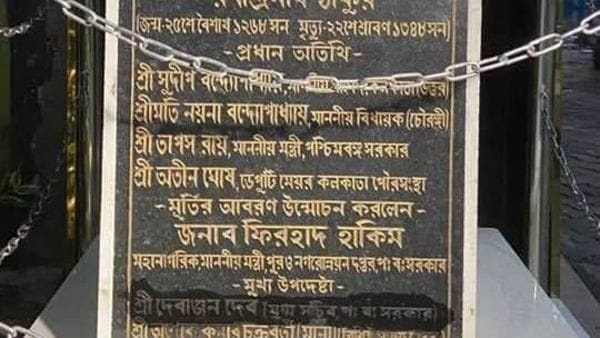 রবীন্দ্রনাথ ঠাকুর
(জন্ম-২৫শে বৈশাখ ১২৬৮ সন মৃত্যু-২২শে শ্রাবণ ১৩৪৮ সন)
-প্রধান অতিথি-
শ্রী সুদীপ বন্দ্যোপাধ্যায়, মাননীয়
শ্রীমতি নয়না বন্দ্যোপাধ্যায়, মাননীয় বিধায়ক (চৌরঙ্গী)
শ্রী তাপস রায়, মাননীয় মন্ত্রী, পশ্চিমবঙ্গ সরকার
শ্রী অতীন ঘোষ, ডেপুটি মেয়র কলকাতা পৌরসংস্থা
-মূর্তির আবরণ উন্মোচন করলেন-
জনাব ফিরহাদ হাকিম
মহানাগরিক, মাননীয় মন্ত্রী, পুর ও নগরোন্নয়ন দপ্তর, পঃ বঃ সরকার
-মুখ্য উপদেষ্টা-
শ্রী দেবাঞ্জন দেব (মুখ্য সচিব পঃ বঃ সরকার)
শ্রী অশোক কুমার চক্রবর্তী